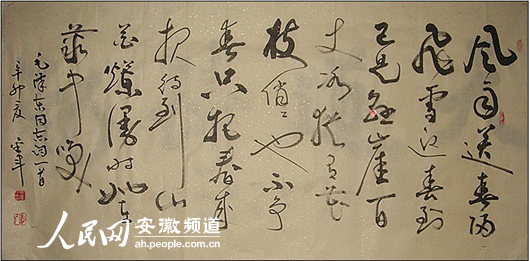 风雨送春归
飞雪迎春到
已是悬崖百
丈冰犹有花
枝俏〻也不争
春只把春来
报待到山
花爛漫时她在
叢中笑
毛泽东同志词一首
辛卯夏
人民网 安徽频道
ah.people.com.cn